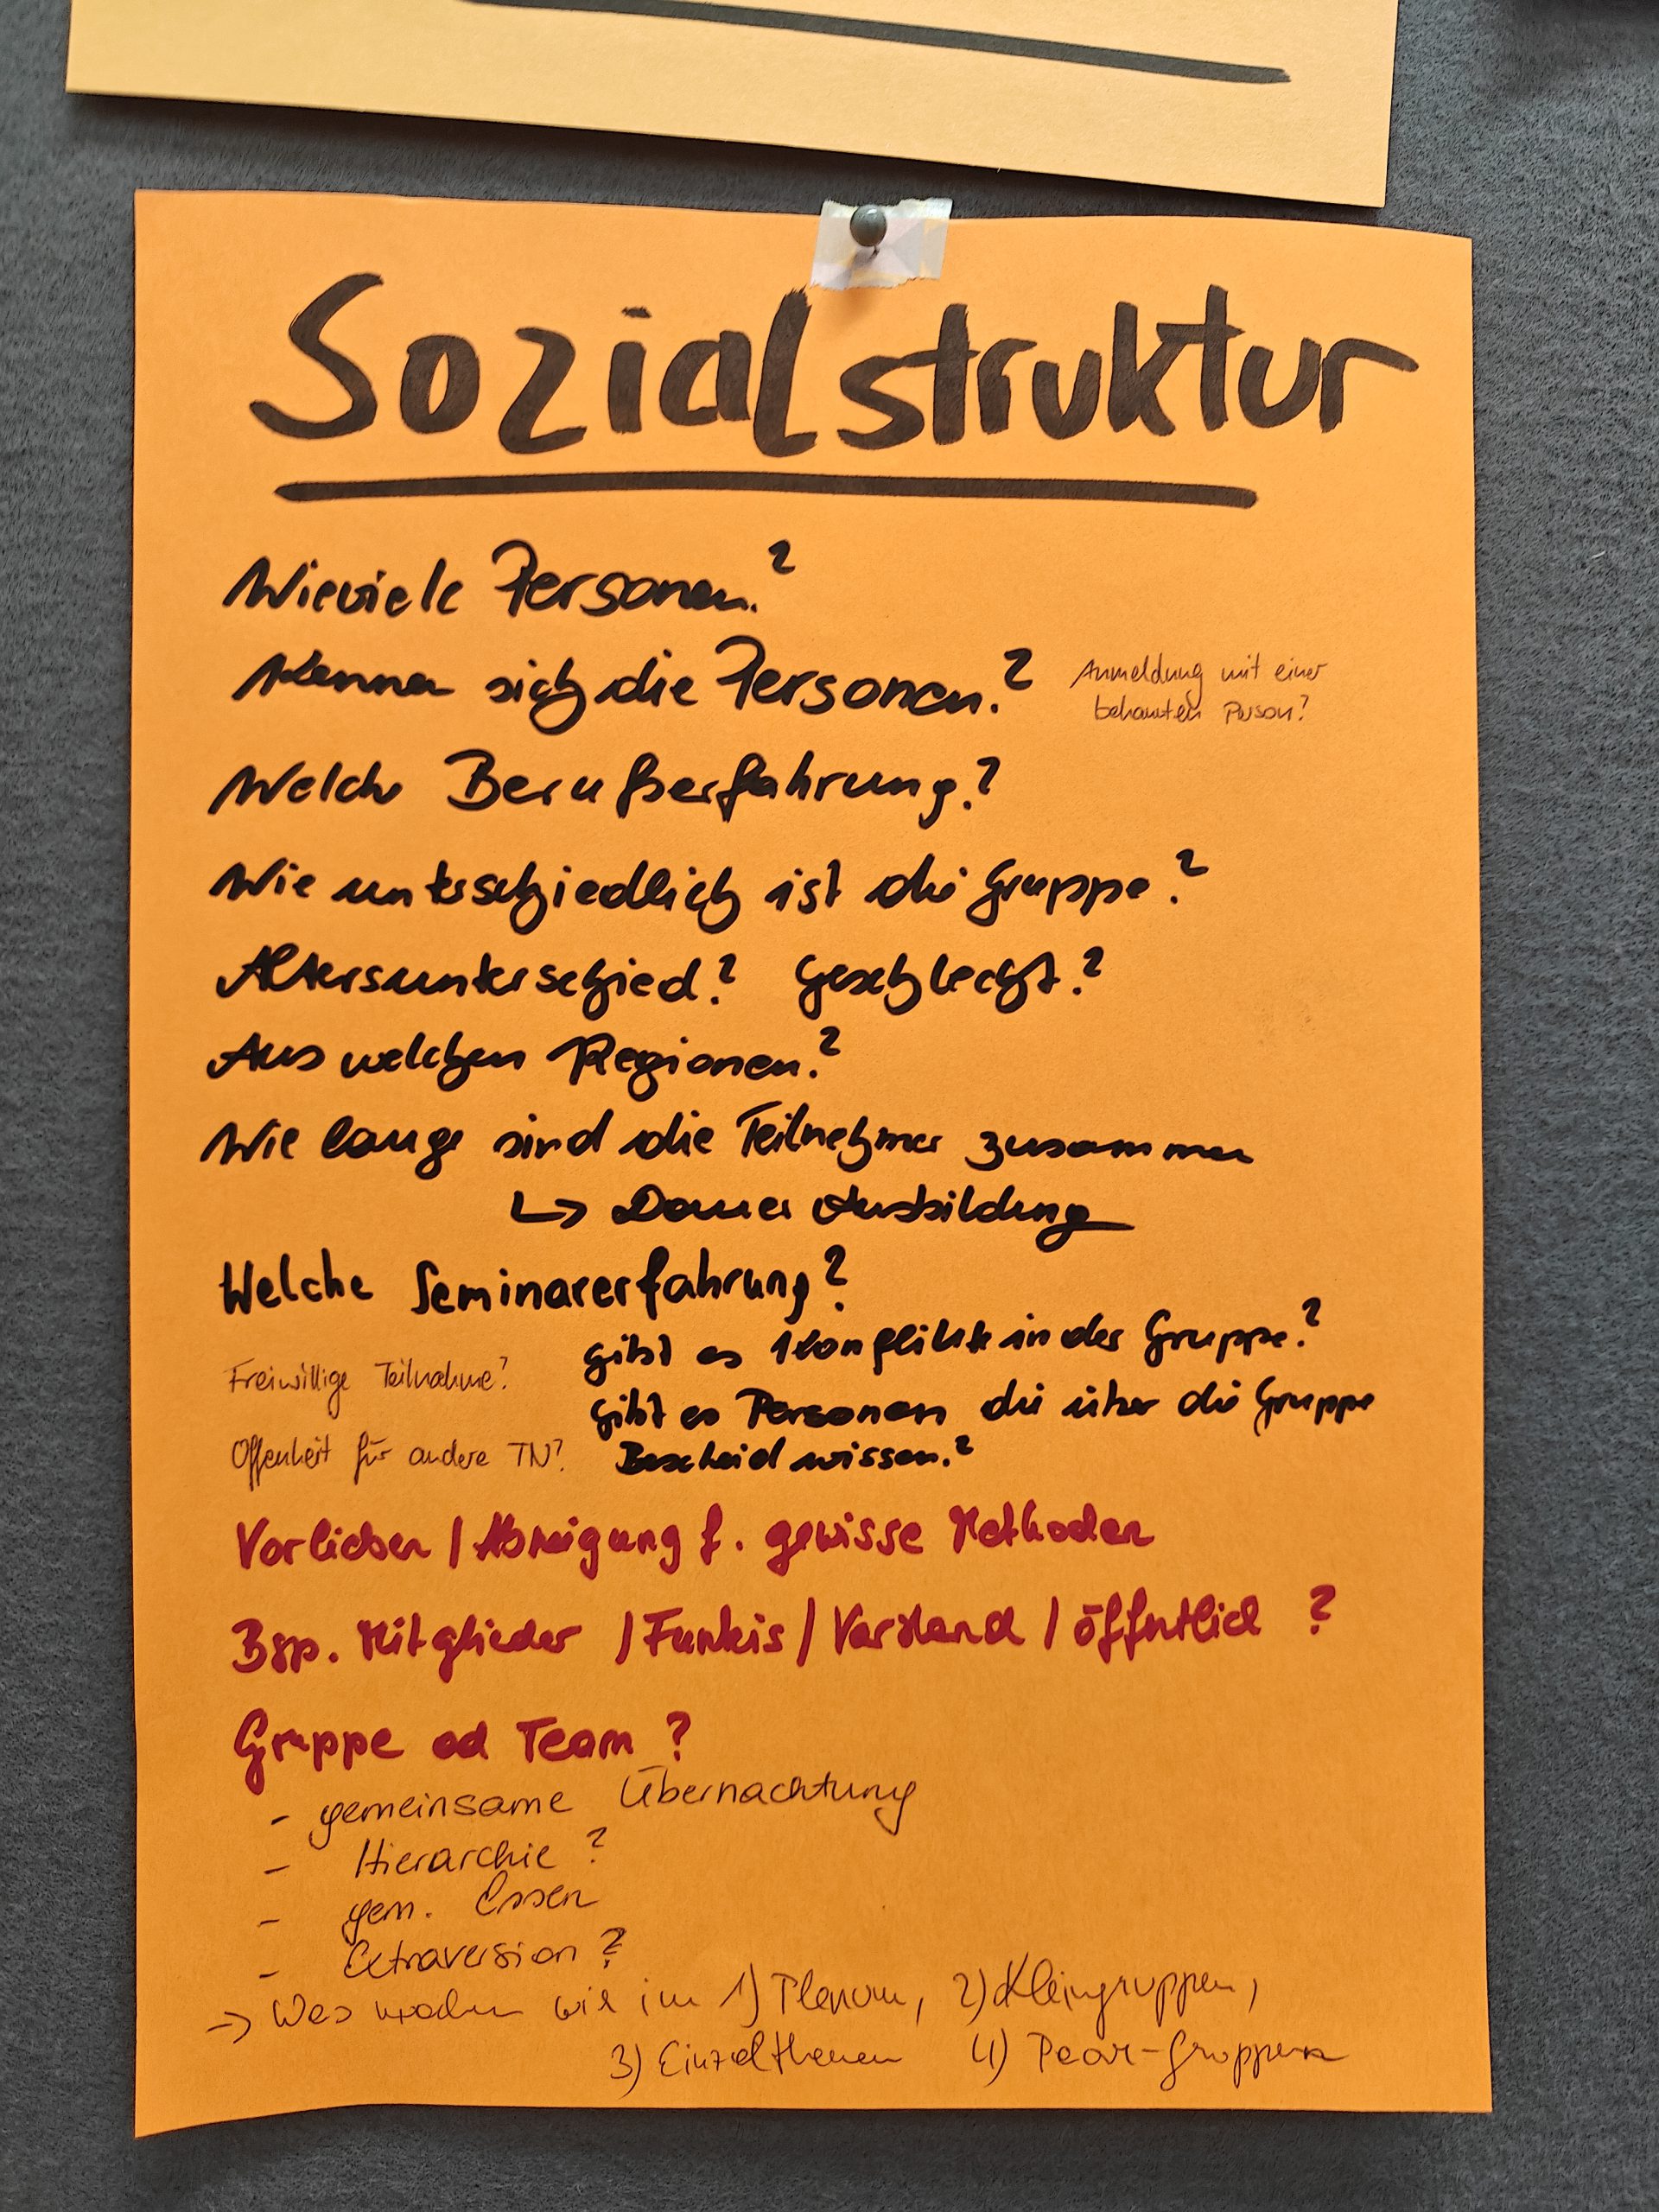 Sozialstruktur
Wieviele Personen?
Kennen sich die Personen? Anmeldung mit einer
bekannten Person?
Welche Berufserfahrung?
Wie unterschiedlich ist die Gruppe?
Altersunterschied? Geschlecht?
Aus welchen Regionen?
Wie lange sind die Teilnehmer zusammen
↳ Dauer Ausbildung
Welche Seminarerfahrung?
gibt es Konflikte in der Gruppe?
Freiwillige Teilnahme?
gibt es Personen die über die Gruppe
Bescheid wissen?
Offenheit für andere TN?
Vorlieben / Abneigung f. gewisse Methoden
Bsp. Mitglieder / Funkis / Vorstand / öffentlich ?
Gruppe od Team ?
- gemeinsame Übernachtung
- Hierarchie ?
- gem. Essen
- Extraversion ?
-> Was machen wir im 1) Plenum, 2) Kleingruppen,
3) Einzelthemen 4) Pear-Gruppen